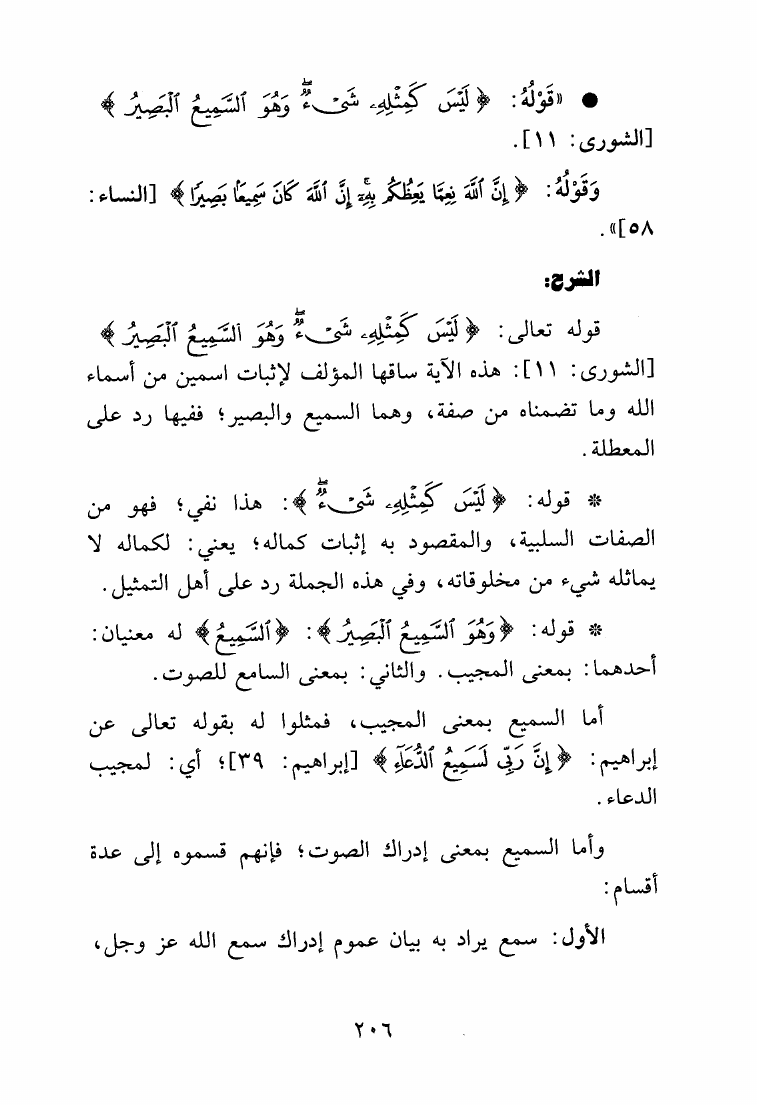 ● «قَوْلُهُ: ﴿ لَيْسَ كَمِثْلِهِۦ شَىْءٌ ۖ وَهُوَ ٱلسَّمِيعُ ٱلْبَصِيرُ ﴾
[الشورى: ١١].
وَقَوْلُهُ: ﴿ إِنَّ ٱللَّهَ نِعِمَّا يَعِظُكُم بِهِۦٓ ۗ إِنَّ ٱللَّهَ كَانَ سَمِيعًۢا بَصِيرًا ﴾ [النساء:
٥٨]».
الشرح:
قوله تعالى: ﴿ لَيْسَ كَمِثْلِهِۦ شَىْءٌ ۖ وَهُوَ ٱلسَّمِيعُ ٱلْبَصِيرُ ﴾
[الشورى: ١١]: هذه الآية ساقها المؤلف لإثبات اسمين من أسماء
الله وما تضمناه من صفة، وهما السميع والبصير؛ ففيها رد على
المعطلة.
* قوله: ﴿ لَيْسَ كَمِثْلِهِۦ شَىْءٌ ۖ ﴾: هذا نفي؛ فهو من
الصفات السلبية، والمقصود به إثبات كماله؛ يعني: لكماله لا
يماثله شيء من مخلوقاته، وفي هذه الجملة رد على أهل التمثيل.
* قوله: ﴿ وَهُوَ ٱلسَّمِيعُ ٱلْبَصِيرُ ﴾: ﴿ ٱلسَّمِيعُ ﴾ له معنيان:
أحدهما: بمعنى المجيب. والثاني: بمعنى السامع للصوت.
أما السميع بمعنى المجيب، فمثلوا له بقوله تعالى عن
إبراهيم: ﴿ إِنَّ رَبِّى لَسَمِيعُ ٱلدُّعَآءِ ﴾ [إبراهيم: ٣٩]؛ أي: لمجيب
الدعاء.
وأما السميع بمعنى إدراك الصوت؛ فإنهم قسموه إلى عدة
أقسام:
الأول: سمع يراد به بيان عموم إدراك سمع الله عز وجل،
٢٠٦